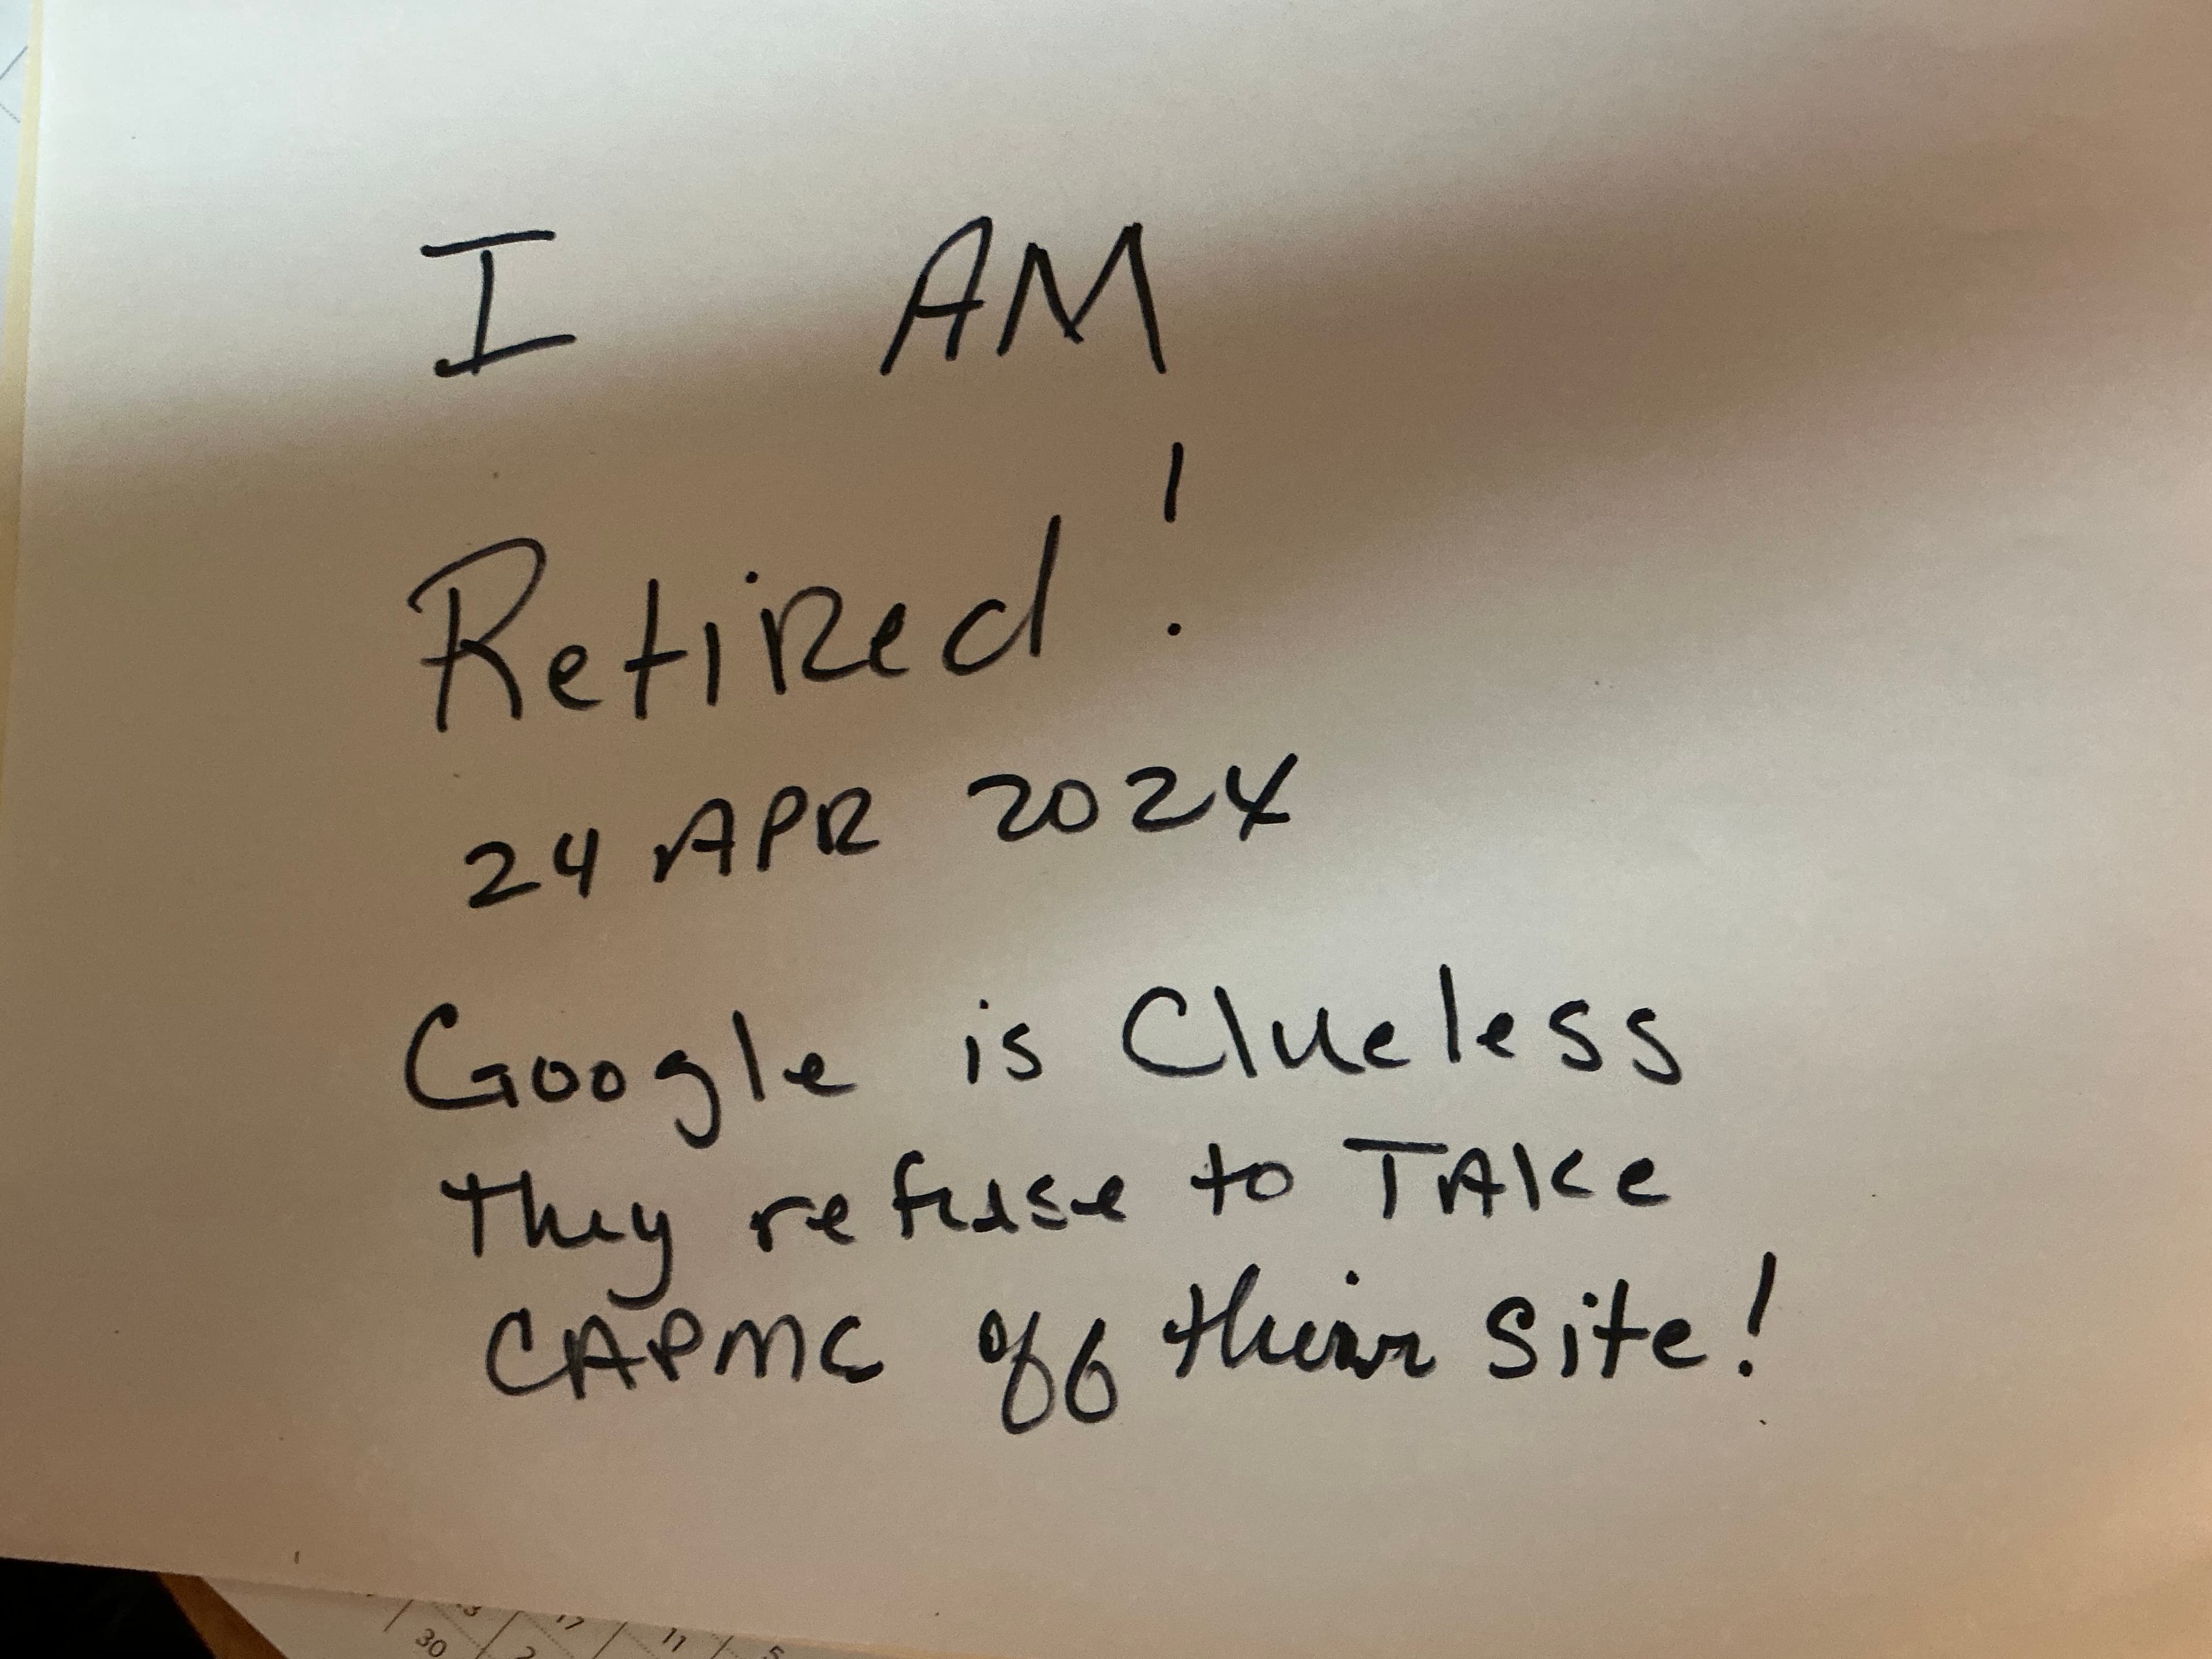 I AM
Retired!
24 APR 2024
Google is Clueless
They refuse to TAKe
CAPMC off their site!
17 11 5
30 2